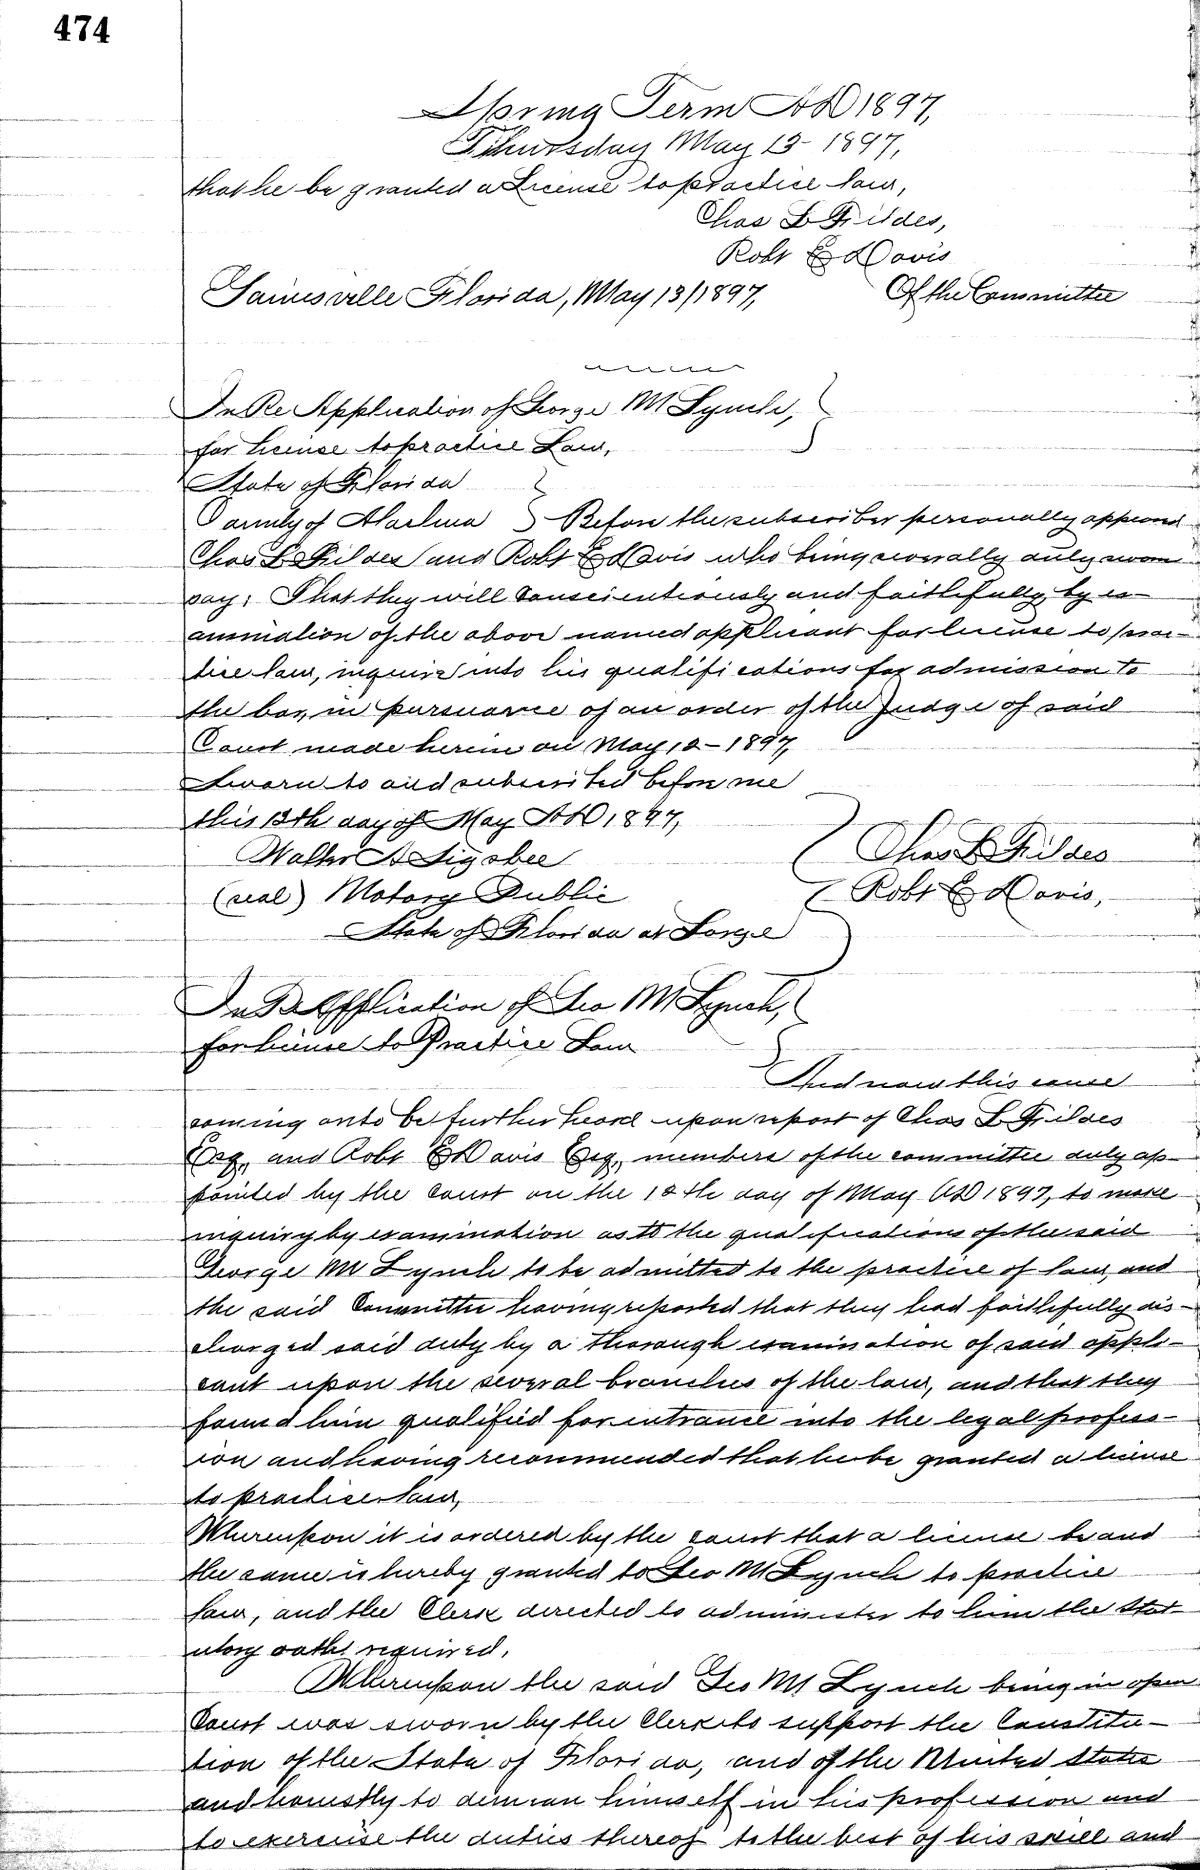 474
Spring Term AD 1897,
Thursday May 13 - 1897,
that he be granted a License to practice law,
Chas L Fildes,
Robt E Davis
Gainesville Florida, May 13/1897, Of the Committee
In Re Application of George M Lynch,
for license to practice Law,
State of Florida
County of Alachua } Before the subscriber personally appeared
Chas L Fildes and Robt E Davis who being severally duly sworn
say; That they will conscientiously and faithfully, by ex-
amination of the above named applicant for license to prac-
tice law, inquire into his qualifications for admission to
the bar, in pursuance of an order of the Judge of said
Court made herein on May 12 - 1897,
Sworn to and subscribed before me
this 13th day of May AD 1897,
Walter A Sigsbee
Chas L Fildes
(seal) Notary Public
Robt E Davis,
State of Florida at Large
In Re Application of Geo M Lynch,
for license to Practice Law
And now this cause
coming on to be further heard upon report of Chas L Fildes
Esq., and Robt E Davis Esq., members of the committee duly ap-
pointed by the Court on the 12th day of May AD 1897, to make
inquiry by examination as to the qualifications of the said
George M Lynch to be admitted to the practice of law, and
the said Committee having reported that they had faithfully dis-
charged said duty by a thorough examination of said appli-
cant upon the several branches of the law, and that they
found him qualified for entrance into the legal profess-
ion and having recommended that he be granted a license
to practice law,
Whereupon it is ordered by the court that a license be and
the same is hereby granted to Geo M Lynch to practice
law, and the Clerk directed to administer to him the stat-
utory oaths required.
Whereupon the said Geo M Lynch being in open
Court was sworn by the Clerk to support the Constitu-
tion of the State of Florida, and of the United States
and honestly to demean himself in his profession and
to exercise the duties thereof to the best of his skill and